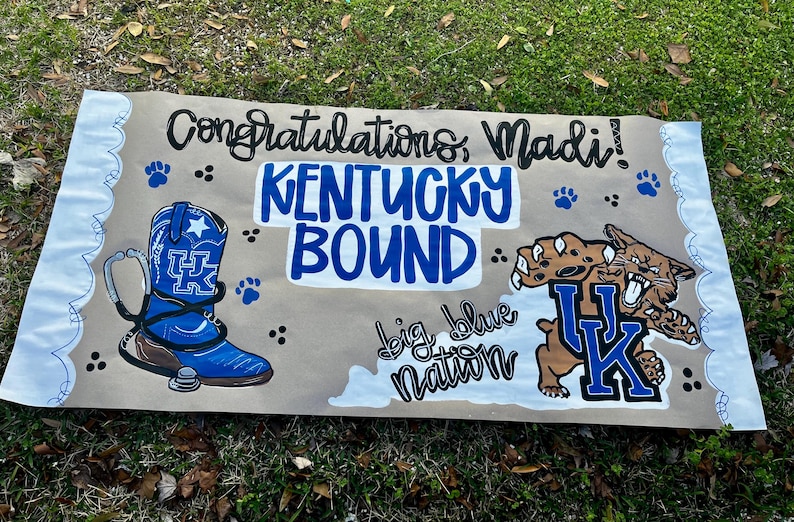 Congratulations, Madi!
KENTUCKY
BOUND
UK
big blue
nation
UK